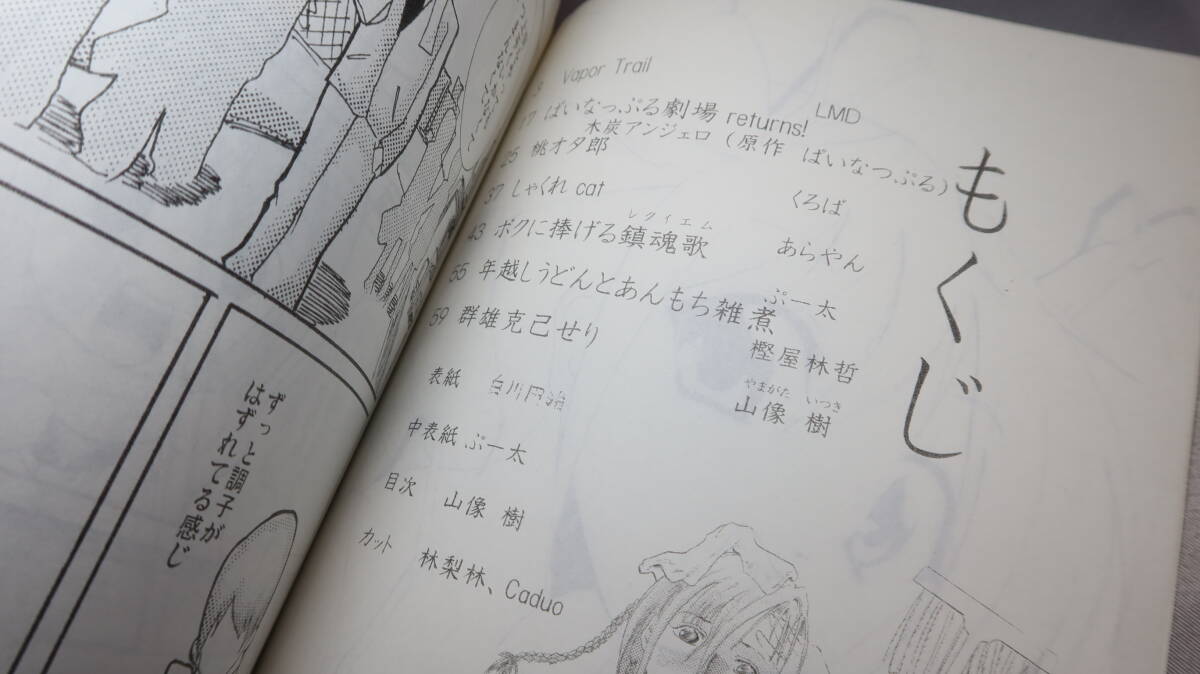 もくじ
3 Vapor Trail LMD
17 ぱいなっぷる劇場 returns!
木炭アンジェロ（原作 ぱいなつぷる）
25 桃オタ郎 くろば
37 しゃくれ cat あらやん
レクイエム
43 ボクに捧げる鎮魂歌 ぷー太
55 年越しうどんとあんもち雑煮 樫屋林哲
やまがた いつき
59 群雄克己せり 山像 樹
表紙
中表紙 ぷー太
目次 山像 樹
カット 林梨林、Caduo
ずっと調子が
はずれてる感じ